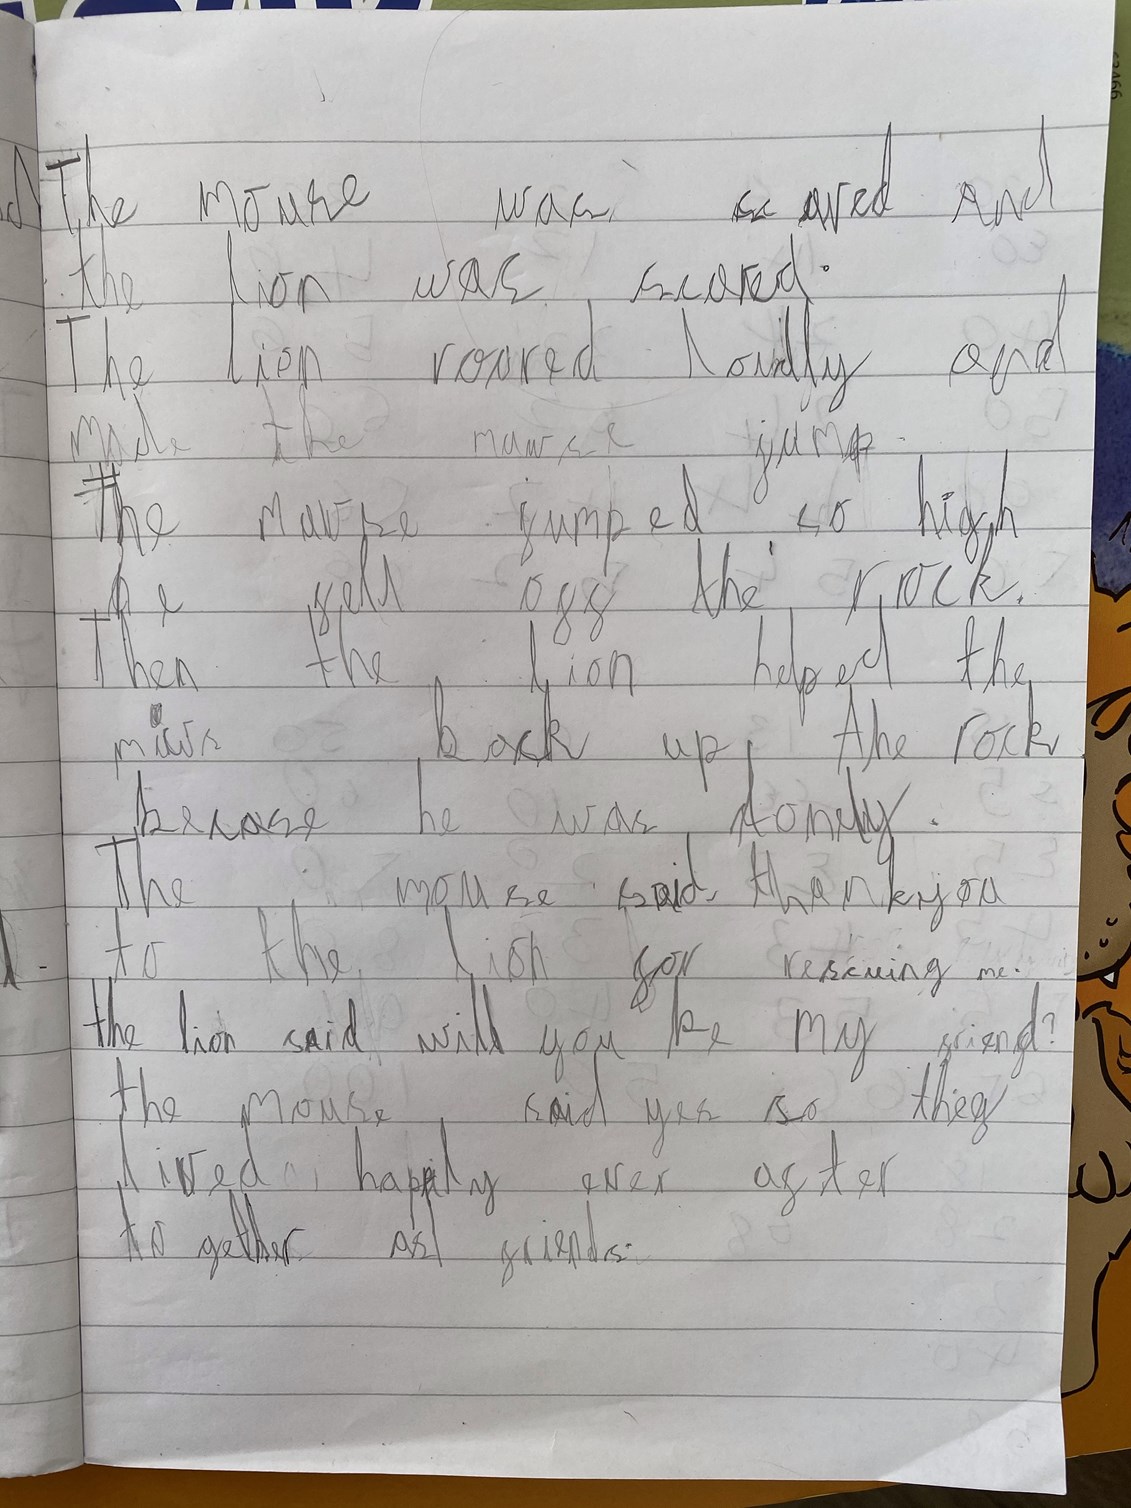 The mouse was scared and
the lion was scared.
The lion roared loudly and
made the mawse jump.
The mawse jumped so high
he fell off the rock.
Then the lion helped the
back up the rock
becase he was lonely.
The mouse said thankyou
to the lion for rescuing me.
the lion said will you be my friend?
the mouse said yes so they
lived happily ever after
together as friends.